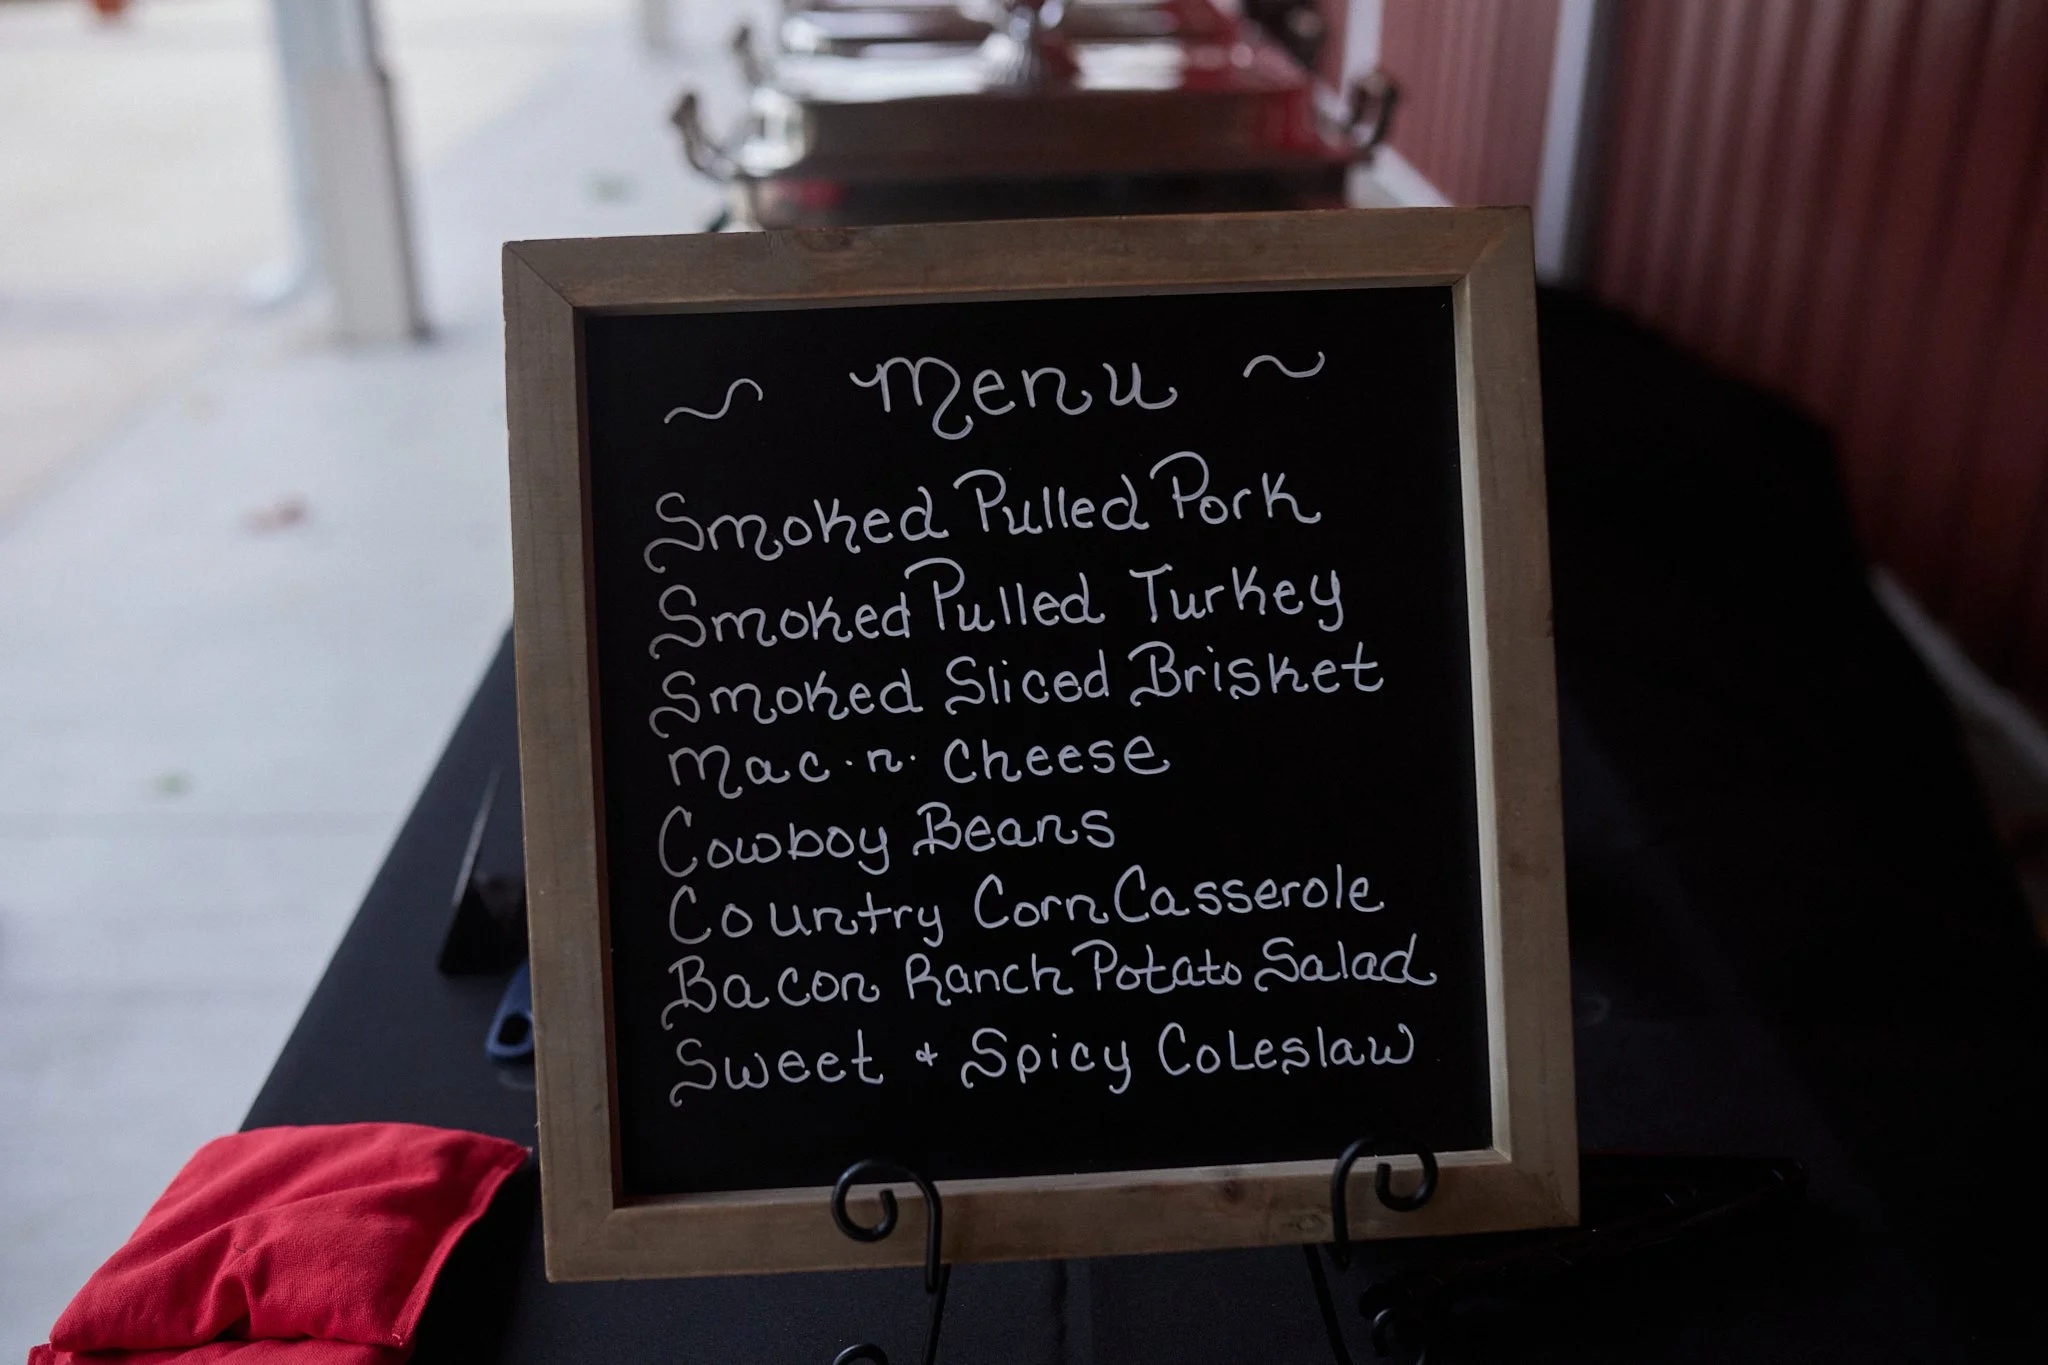 ~ Menu ~
Smoked Pulled Pork
Smoked Pulled Turkey
Smoked Sliced Brisket
Mac·n· Cheese
Cowboy Beans
Country Corn Casserole
Bacon Ranch Potato Salad
Sweet & Spicy Coleslaw